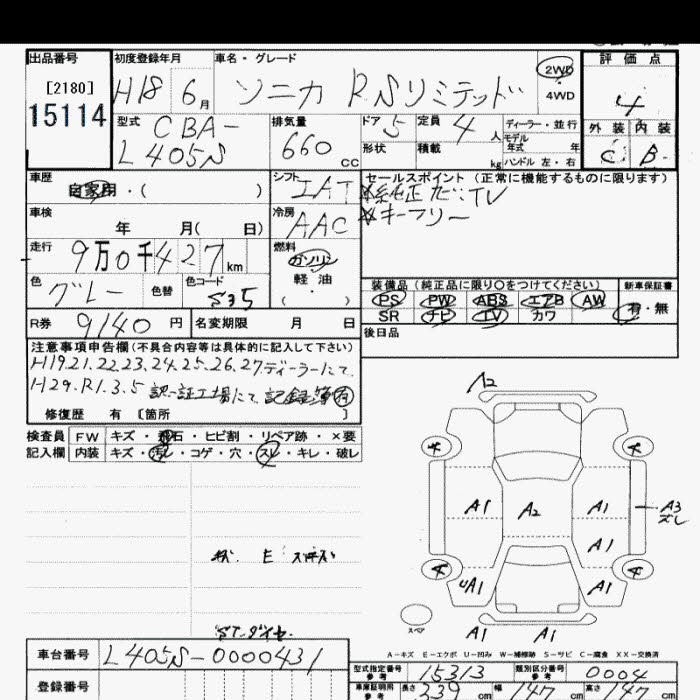 出品番号
[2180]
15114
初度登録年月
H18 6月
車名・グレード
ソニカ RSリミテッド
2WD
・
4WD
評価点
4
外装 内装
C B-
型式
CBA-
L405S
排気量
660 cc
ドア 5
定員 4 人
ディーラー・並行
モデル
年式 年
形状
積載 kg
ハンドル 左・右
車歴
自家用・( )
シフト
IAT
セールスポイント (正常に機能するものに限ります)
☆純正ナビ:TV
☆キーフリー
車検
年 月( 日)
冷房
AAC
走行
9万0千427km
燃料
ガソリン
・
軽油
( ・ )
色
グレー
色替
色コード
S35
装備品 (純正品に限り〇をつけてください)
新車保証書
PS PW ABS エアB AW
SR ナビ TV カワ
有・無
R券 9140 円
名変期限 月 日
後日品
注意事項申告欄 (不具合内容等は具体的に記入して下さい)
H19.21.22.23.24.25.26.27.ディーラーにて
H29.R1.3.5 認証工場にて 記録簿有
修復歴 有 〔箇所 〕
検査員
記入欄
FW キズ・飛石・ヒビ割・リペア跡・×要
内装 キズ・汚レ・コゲ・穴・スレ・キレ・破レ
A2
A1
A2
A1
A3
ズレ
A1
UA1
A1
A1
A1
スペア
STダイヤ.
A-キズ E-エクボ U-凹み W-補修跡 S-サビ C-腐食 XX-交換済
車台番号
L405S-0000431
登録番号
型式指定番号
参考
15313
類別区分番号
参考
0004
車庫証明用
参考
長さ 339 cm
幅 147 cm
高さ 147 cm